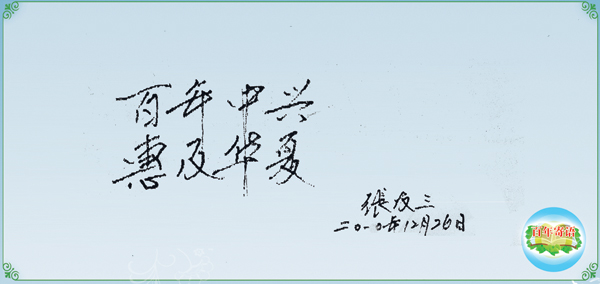 百年中兴
惠及华夏
張友三
二〇一〇年12月26日
百年寄语